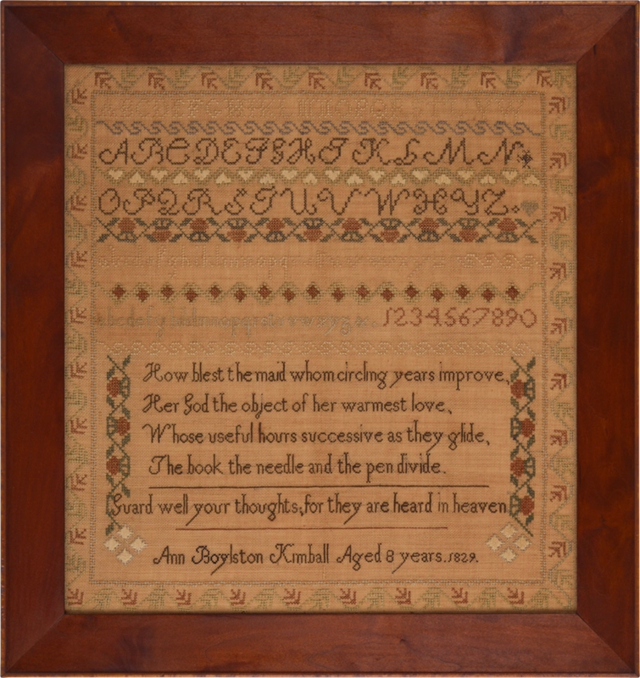 A B C D E F G H I K L M N
O P Q R S T U V W X Y Z
1234567890
How blest the maid whom circling years improve,
Her God the object of her warmest love,
Whose useful hours successive as they glide,
The book the needle and the pen divide.
Guard well your thoughts, for they are heard in heaven
Ann Boylston Kimball Aged 8 years. 1829.